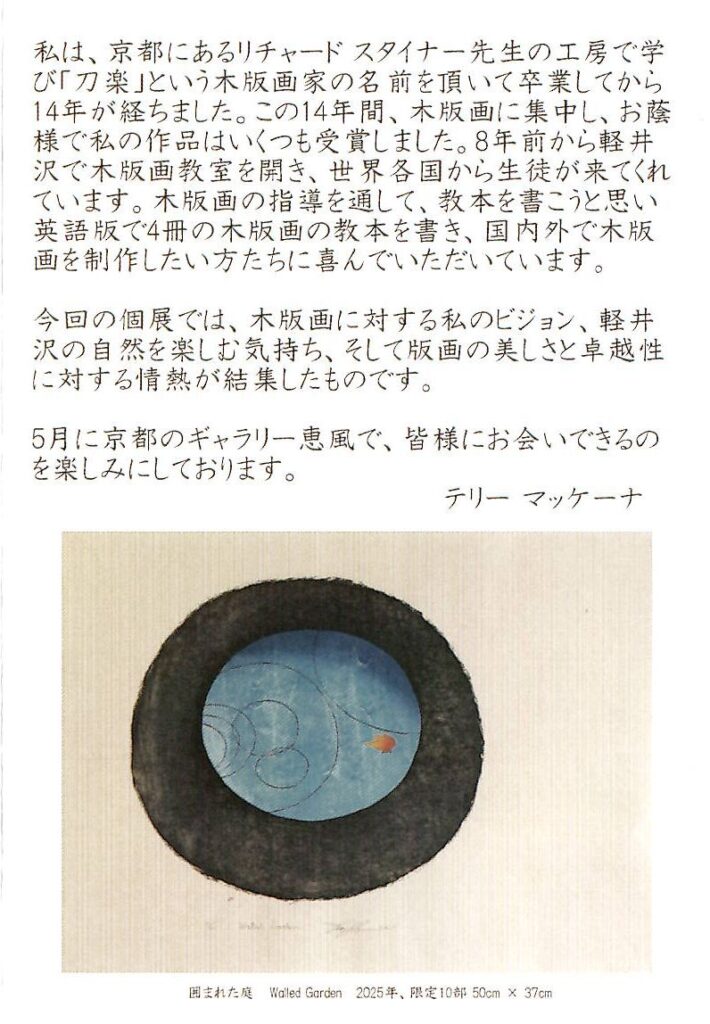 私は、京都にあるリチャード スタイナー先生の工房で学
び「刀楽」という木版画家の名前を頂いて卒業してから
14年が経ちました。この14年間、木版画に集中し、お蔭
様で私の作品はいくつも受賞しました。8年前から軽井
沢で木版画教室を開き、世界各国から生徒が来てくれ
ています。木版画の指導を通して、教本を書こうと思い
英語版で4冊の木版画の教本を書き、国内外で木版
画を制作したい方たちに喜んでいただいています。
今回の個展では、木版画に対する私のビジョン、軽井
沢の自然を楽しむ気持ち、そして版画の美しさと卓越性
に対する情熱が結集したものです。
5月に京都のギャラリー恵風で、皆様にお会いできるの
を楽しみにしております。
テリー マッケーナ
Walled Garden
囲まれた庭 Walled Garden 2025年、限定10部 50cm × 37cm